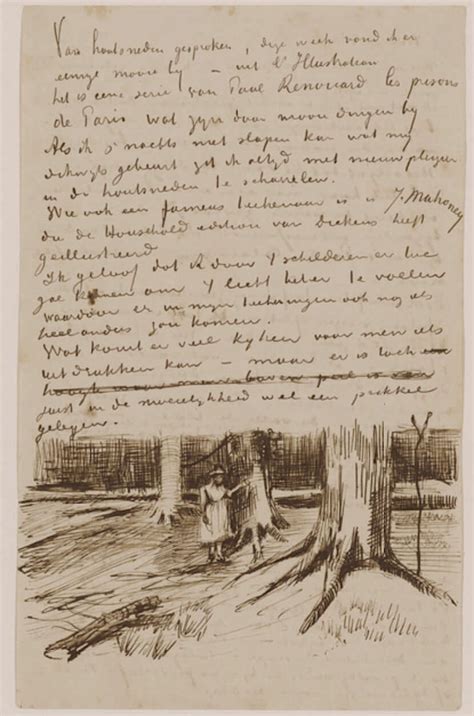 Van houtsneden gesproken, deze week vond ik er
eenige mooie bij – uit l'Illustration
het is eene serie van Paul Renouard les prisons
de Paris wat zyn daar mooie dingen by
Als ik s'nachts niet slapen kan wat my
dikwyls gebeurt zit ik altyd met nieuw pleizier
in de houtsneden te scharrelen.
Wie ook een fameus teekenaar is is J. Mahoney
die de Household edition van Dickens heeft
geillustreerd
Ik geloof dat ik door 't schilderen er toe
zal komen om 't licht beter te voelen
waardoor er in myn teekeningen ook nog iets
heel anders zou komen.
Wat komt er veel kyken voor men iets
uitdrukken kan – maar er is toch
juist in de moeielykheid wel een prikkel
gelegen.